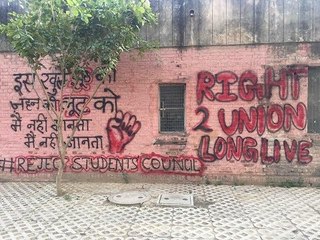 इस खुले झूठ को
ज़हन की लूट को
मैं नहीं मानता
मैं नहीं जानता
#REJECT STUDENTS COUNCIL
RIGHT
2 UNION
LONG LIVE